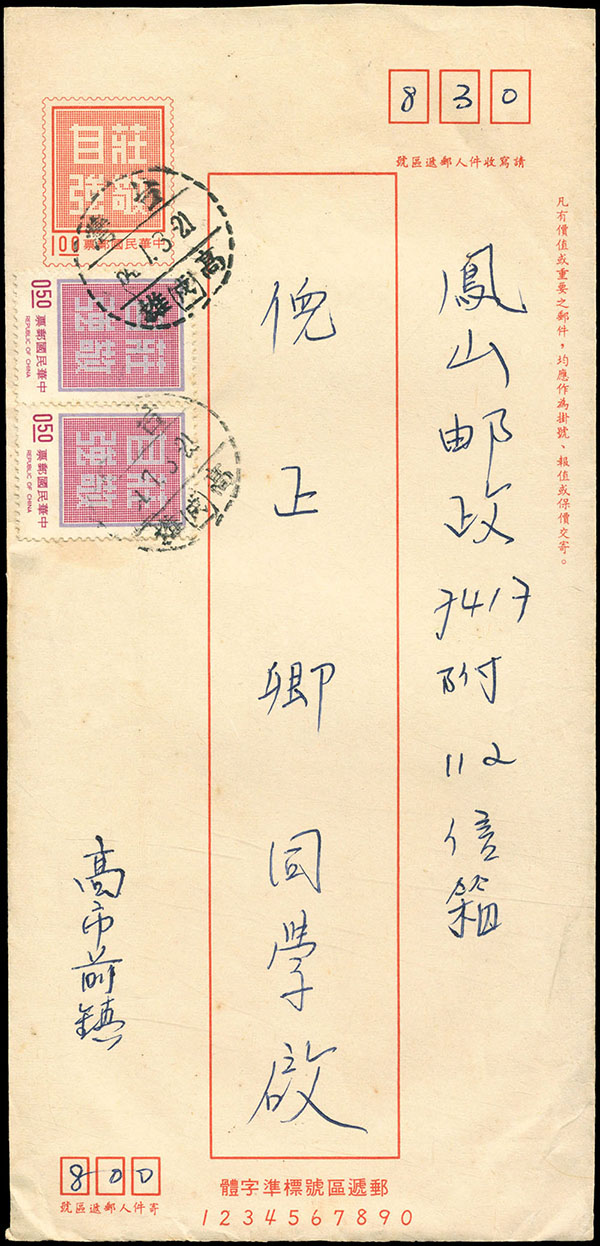 830
請寫收件人郵遞區號
凡有價值或重要之郵件，均應作為掛號、報值或保價交寄。
鳳山邮政7417附112信箱
倪正卿同學啟
莊敬自強
1.00
中華民國郵票
莊敬自強
0.50
中華民國郵票
REPUBLIC OF CHINA
莊敬自強
0.50
中華民國郵票
REPUBLIC OF CHINA
台灣
高雄
高市前鎮
800
寄件人郵遞區號
郵遞區號標準字體
1234567890